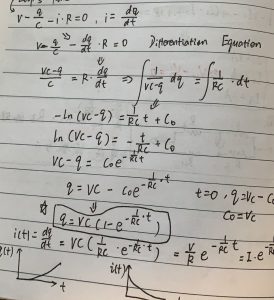 v - q/c - i·R = 0 , i = dq/dt
v - q/c - dq/dt · R = 0 Differentiation Equation
vc-q/c = R · dq/dt ⇒ ∫ 1/vc-q dq = ∫ 1/RC · dt
-ln(vc-q) = 1/RC t + C₀
ln(vc-q) = - t/RC + C₀
vc-q = C₀e^-1/RC t
q = vc - C₀e^-1/RC·t t=0, q=vc-C₀
C₀=vc
q = vc (1-e^-1/RC·t)
i(t) = dq/dt = vc (1/RC · e^-1/RC·t) = v/R e^-1/RC t = I·e^-1/RC
q(t) i(t)
t